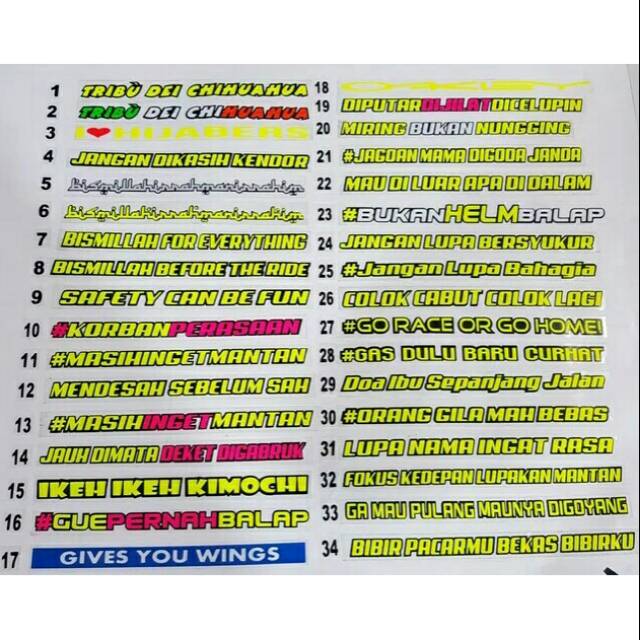 1 TRIBÙ DEI CHIHUAHUA
2 TRIBÙ DEI CHIHUAHUA
3 I ❤ HIJABERS
4 JANGAN DIKASIH KENDOR
5 bismillahirrahmanirrahim
6 bismillahirrahmanirrahim
7 BISMILLAH FOR EVERYTHING
8 BISMILLAH BEFORE THE RIDE
9 SAFETY CAN BE FUN
10 #KORBANPERASAAN
11 #MASIHINGETMANTAN
12 MENDESAH SEBELUM SAH
13 #MASIHINGETMANTAN
14 JAUH DIMATA DEKET DIGABRUK
15 IKEH IKEH KIMOCHI
16 #GUEPERNAHBALAP
17 GIVES YOU WINGS
18 OAKLEY
19 DIPUTARDIJILATDICELUPIN
20 MIRING BUKAN NUNGGING
21 #JAGOAN MAMA DIGODA JANDA
22 MAU DI LUAR APA DI DALAM
23 #BUKANHELMBALAP
24 JANGAN LUPA BERSYUKUR
25 #Jangan Lupa Bahagia
26 COLOK CABUT COLOK LAGI
27 #GO RACE OR GO HOME!
28 #GAS DULU BARU CURHAT
29 Doa Ibu Sepanjang Jalan
30 #ORANG GILA MAH BEBAS
31 LUPA NAMA INGAT RASA
32 FOKUS KEDEPAN LUPAKAN MANTAN
33 GA MAU PULANG MAUNYA DIGOYANG
34 BIBIR PACARMU BEKAS BIBIRKU